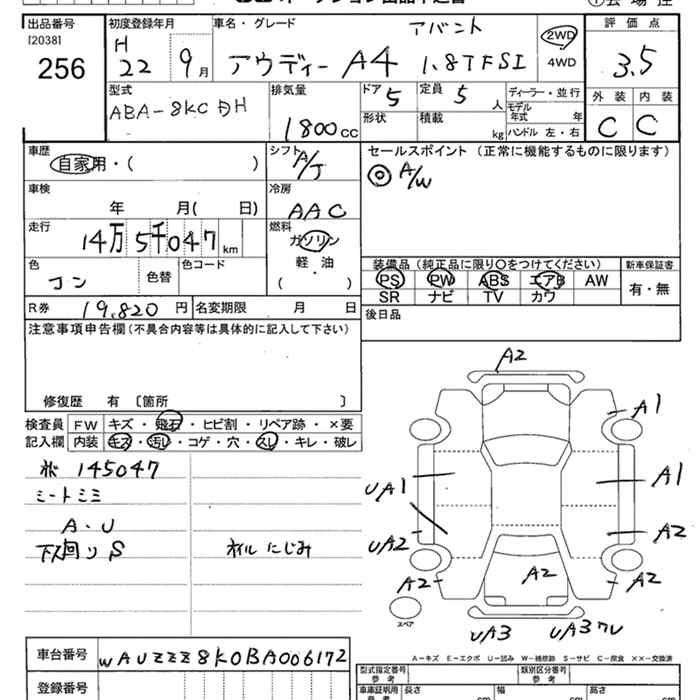 出品番号 初度登録年月 車名・グレード 評価点
[2038]
256
H
22 9月
アウディー A4 アバント 1.8TFSI
2WD
4WD
3.5
型式
ABA-8KCDH
排気量
1800cc
ドア 5
定員 5人
ディーラー・並行
モデル年式 年
形状
積載 kg
ハンドル 左・右
外装 内装
C C
車歴
自家用・( )
シフト
A/T
セールスポイント (正常に機能するものに限ります)
◎ A/W
車検
年 月( 日)
冷房
AAC
走行
14万5千047km
燃料
ガソリン
軽・油
( )
色
コン
色替
色コード
装備品(純正品に限り〇をつけてください)
新車保証書
PS PW ABS エアB AW
SR ナビ TV カワ
有・無
R券 19,820円
名変期限 月 日
後日品
注意事項申告欄(不具合内容等は具体的に記入して下さい)
修復歴 有〔箇所 〕
検査員記入欄
FW キズ・飛石・ヒビ割・リペア跡・×要
内装 キズ・汚レ・コゲ・穴・スレ・キレ・破レ
145047
A・U
下廻りS
オイルにじみ
A2
A1
UA1
A1
UA2
A2
A2
A2
A2
UA3
UA3
スペア
A-キズ E-エクボ U-凹み W-補修跡 S-サビ C-腐食 XX-交換済
車台番号 WAUZZZ8K0BA006172
登録番号
型式指定番号
参考
類別区分番号
参考
車庫証明用
参考
長さ cm
幅 cm
高さ cm